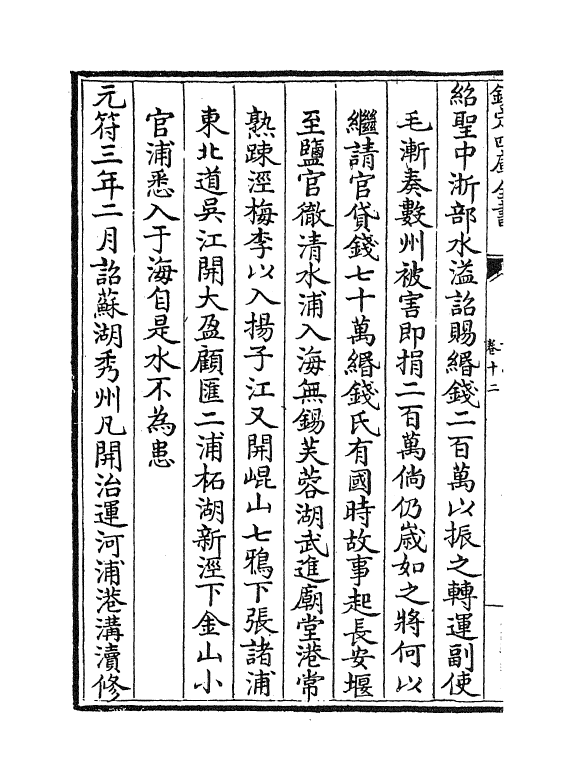 紹聖中浙部水溢詔賜緡錢二百萬以振之轉運副使
毛漸奏數州被害即捐二百萬倘仍歲如之將何以
繼請官貸錢七十萬緡錢氏有國時故事起長安堰
至鹽官徹清水浦入海無錫芙蓉湖武進廟堂港常
熟疎涇梅李以入揚子江又開崐山七鴉下張諸浦
東北道吳江開大盈顧匯二浦柘湖新涇下金山小
官浦悉入于海自是水不為患
元符三年二月詔蘇湖秀州凡開治運河浦港溝瀆修
卷十二